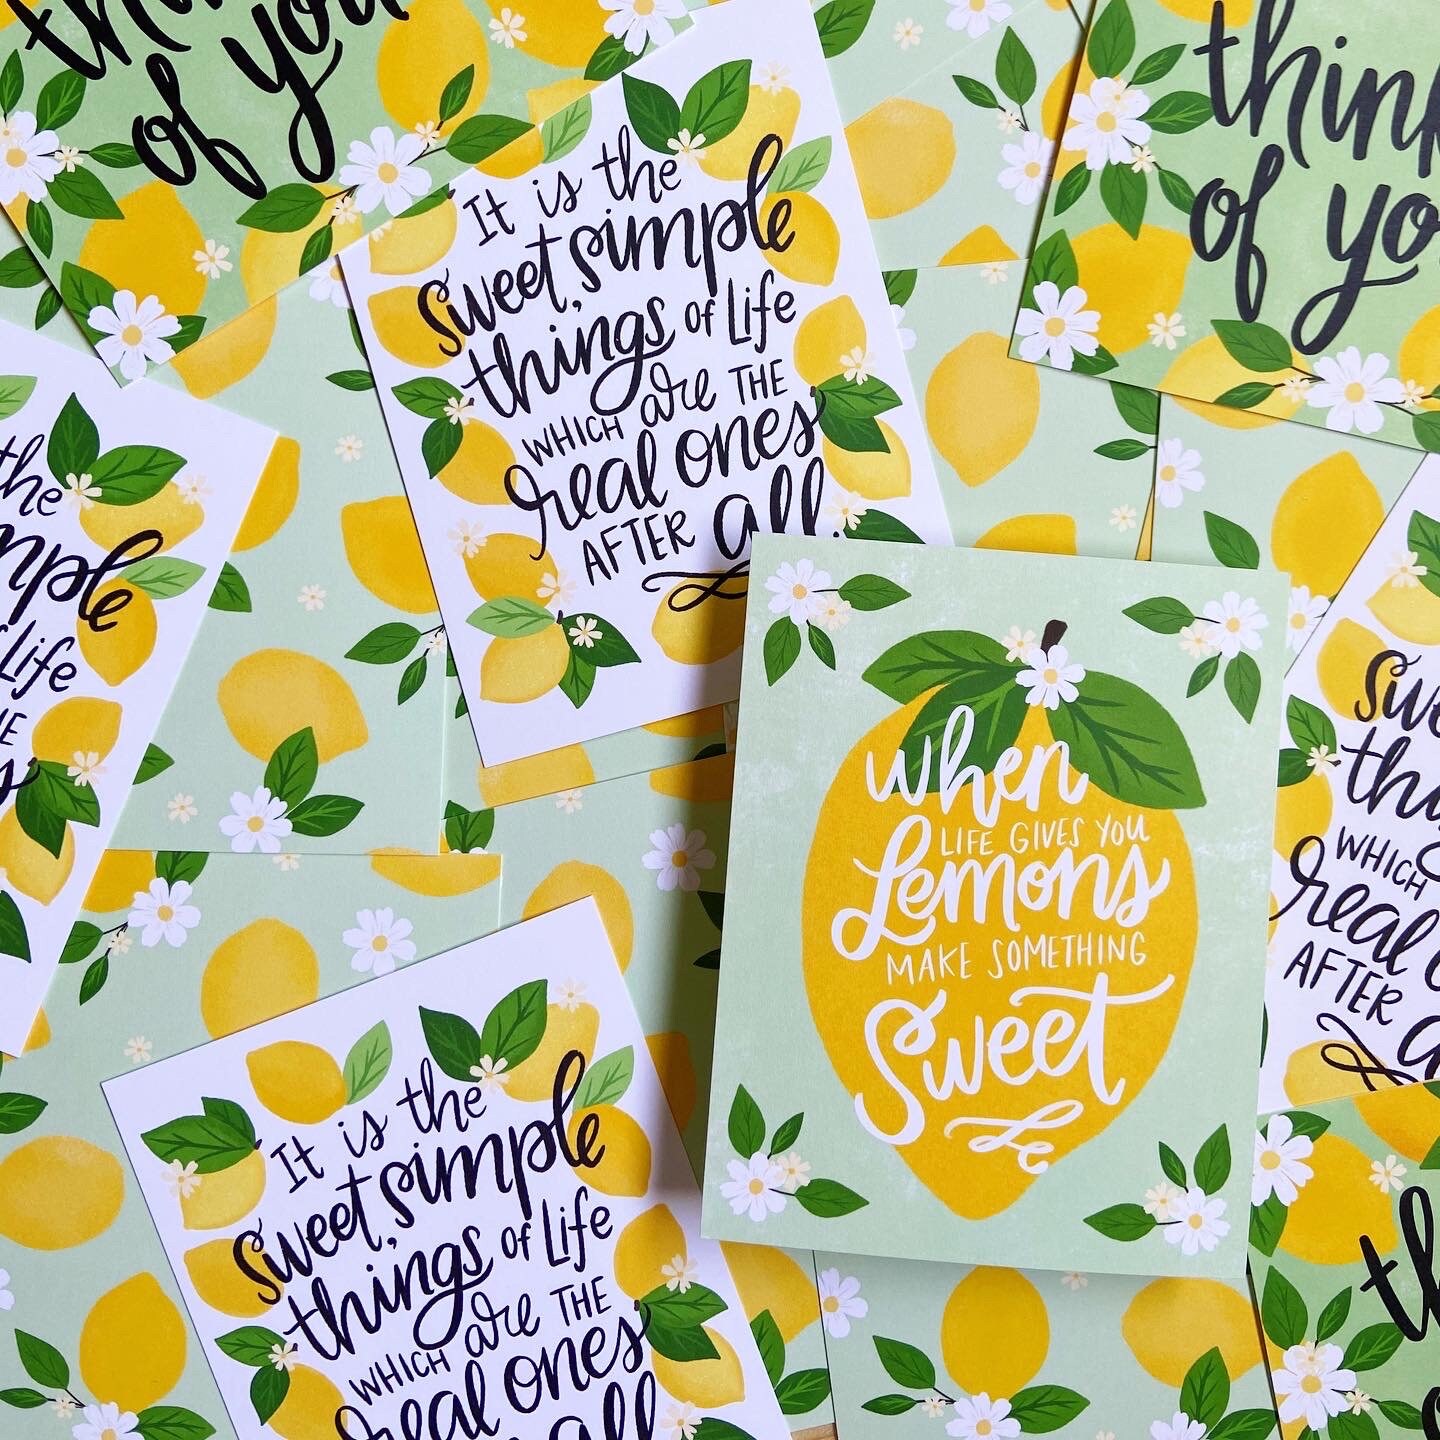 of you
think
of yo
It is the
sweet, simple
things of Life
WHICH are THE
real ones
AFTER all.
the
Life
when
LIFE GIVES YOU
Lemons
MAKE SOMETHING
Sweet
WHICH
real
AFTER
It is the
sweet, simple
things of Life
WHICH are THE
real ones
all